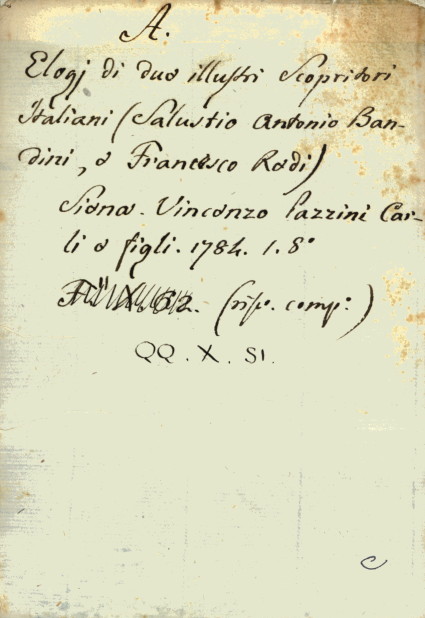 A.
Elogj di due illustri Scopritori
Italiani (Salustio Antonio Ban-
dini, e Francesco Redi)
Siena. Vincenzo Pazzini Car-
li e figli. 1784. 1. 8°
(risp. comp.)
QQ. X. 51.
C